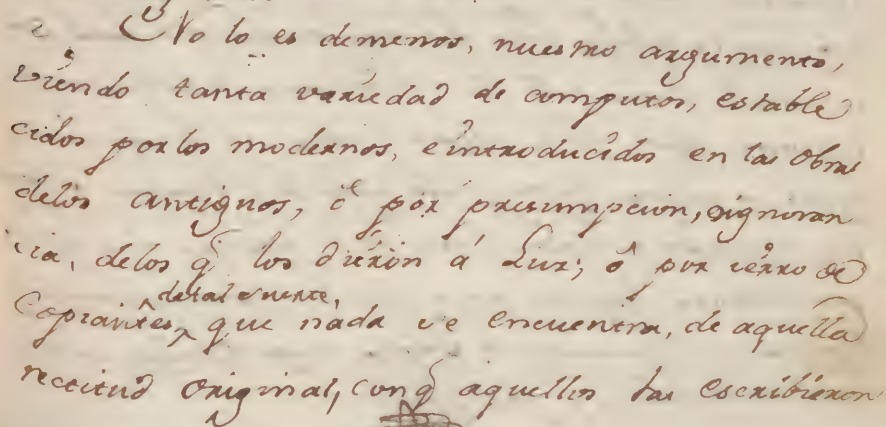 No lo es demenos, nuestro argumento,
viendo tanta variedad de computos, estable
cidos por los modernos, eintroducidos en las Obras
delos antiguos, ó por presumpcion, ôignoran
cia, delos q̃ los dierón á Luz; ó por ierro de
detal suerte,
Copiantes, que nada se encuentra, de aquella
rectitud original, con q̃ aquellos las escribieron